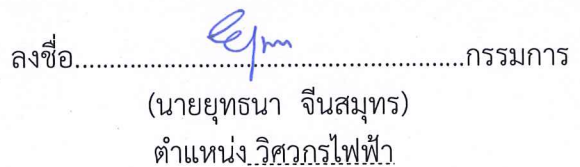 ลงชื่อ................................................กรรมการ
(นายยุทธนา จีนสมุทร)
ตำแหน่ง วิศวกรไฟฟ้า